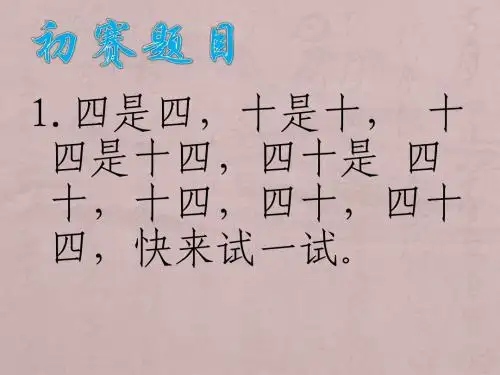 初赛题目
1.四是四，十是十， 十
四是十四，四十是 四
十，十四，四十，四十
四，快来试一试。